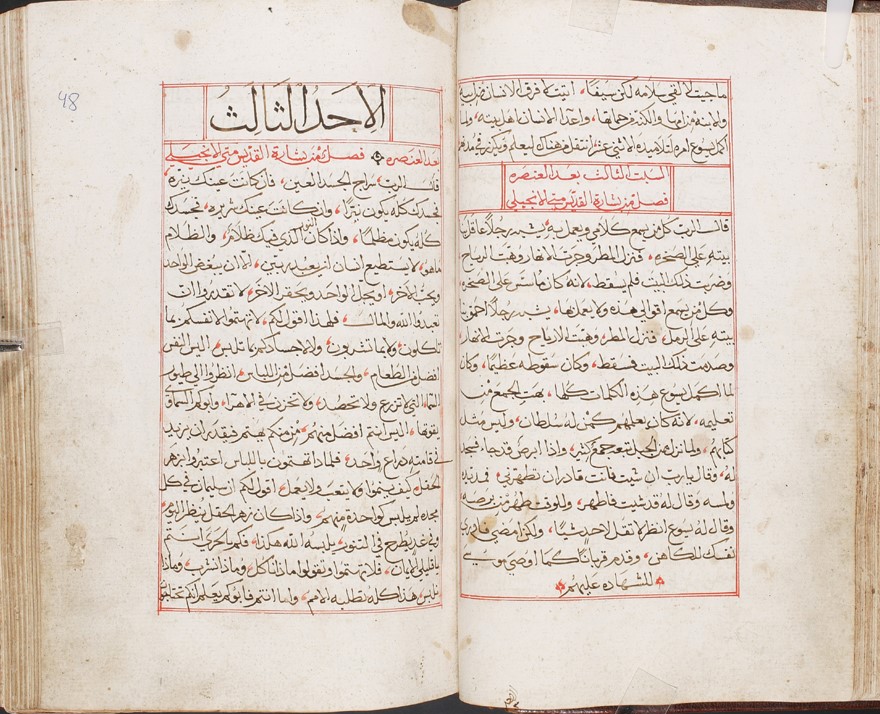 ما جيت لالقي سلامه لكن سيفًا، اتيت لافرق الانسان ضد ابيه
والابنه من امها والكنه من حماتها، واعدا الانسان اهل بيته، ولما
اكمل يسوع امره لتلاميذه الاثني عشر انتقل من هناك ليعلم ويكرز في مدنهم
السبت الثالث بعد العنصره
فصل من بشارة القديس متي الانجيلي
قال الرب كل من يسمع كلامي ويعمل به، يشبه رجلاً عاقل بنا
بيته علي الصخره، فنزل المطر وجرت الانهار وهبت الرياح
وضربت ذلك البيت فلم يسقط، لانه كان ماسس علي الصخره
وكل من يسمع اقوالي هذه ولا يعمل بها، يشبه رجلاً احمق بنا
بيته علي الرمل، فنزل المطر وهبت الارياح وجرت الانهار
وصدمت ذلك البيت فسقط، وكان سقوطه عظيمًا، وكان
لما اكمل يسوع هذه الكلمات كلها، بهت الجمع من
تعليمه، لانه كان يعلمهم كمن له سلطان، وليس مثل
كتابهم، ولما نزل من الجبل تبعه جمع كثير، واذا ابرص قد جا فسجد
له، وقال يا رب ان شيت فانت قادر ان تطهرني، فمد يده
ولمسه وقال له قد شيت فاطهر، وللوقت طهر من برصه
وقال له يسوع انظر لا تقل لاحد شيئًا، ولكن امضي فاري
نفسك للكاهن، وقدم قربانًا كما اوصي موسي
للشهاده عليهم
48
الاحد الثالث
بعد العنصره فصل من بشارة القديس متي الانجيلي
قال الرب سراج الجسد العين، فان كانت عينك نيره
فجسدك كله يكون نيرًا، وان كانت عينك شريره، فجسدك
كله يكون مظلمًا، واذا كان النور الذي فيك ظلام، والظلام
ما هو، لا يستطيع انسان ان يعبد ربين، الا ان يبغض الواحد
ويحب الاخر، او يجل الواحد ويحقر الاخر، لا تقدروا ان
تعبدوا الله والمال، فلهذا اقول لكم، لا تهتموا لانفسكم بما
تاكلون، ولا بما تشربون، ولا لاجسادكم بما تلبس، اليس النفس
افضل من الطعام، والجسد افضل من اللباس، انظروا الي طيور
السما، التي لا تزرع ولا تحصد، ولا تخزن في الاهرا، وابوكم السماوي
يقوتها، اليس انتم افضل منهم، من منكم يهتم فيقدر ان يزيد
في قامته ذراع واحده، فلماذا تهتمون باللباس اعتبروا بزهر
الحقل، كيف ينموا ولا يتعب ولا يعمل، اقول لكم ان سليمان في كل
مجده لم يلبس كواحدة منهم، واذا كان زهر الحقل ينظر اليوم
وفي غد يطرح في التنور يلبسه الله هكذا، فكم بالحري انتم
يا قليلي الايمان، فلا تهتموا وتقولوا ماذا ناكل وماذا نشرب، وماذا
نلبس هذا كله تطلبه الامم، واما انتم فابوكم يعلم انكم تحتاجون